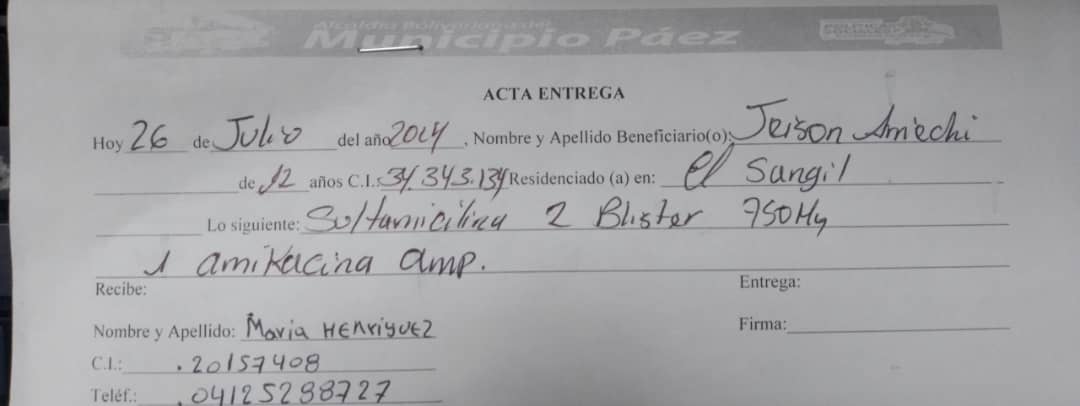 Alcaldía Bolivariana del
Municipio Páez
ACTA ENTREGA
Hoy 26 de Julio del año 2024, Nombre y Apellido Beneficiario(o): Jeison Amiechi
de 12 años C.I.: 34.343.134 Residenciado (a) en: el Sangil
Lo siguiente: Sultamicilina 2 Blister 750Mg
1 amikacina amp.
Recibe: Entrega:
Nombre y Apellido: Maria HENRIQUEZ Firma:
C.I.: .20157408
Teléf.: .04125288727